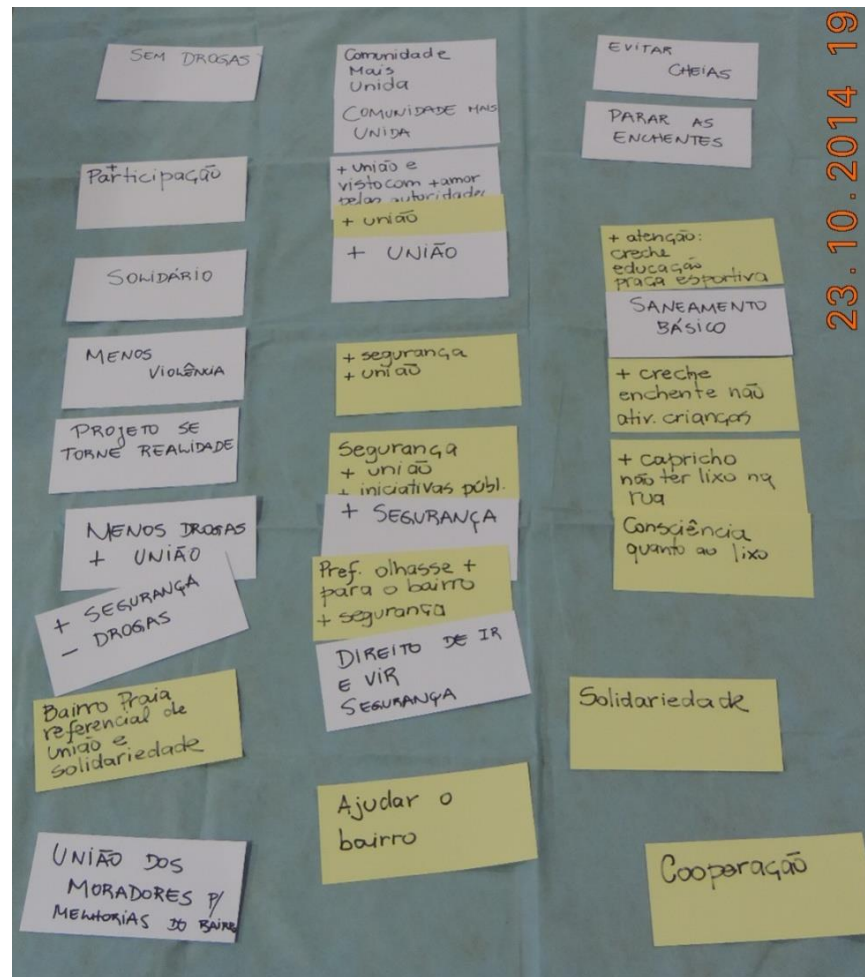 SEM DROGAS
+
Participação
SOLIDÁRIO
MENOS
VIOLÊNCIA
PROJETO SE
TORNE REALIDADE
MENOS DROGAS
+ UNIÃO
+ SEGURANÇA
- DROGAS
Bairro Praia
referencial de
união e
solidariedade
UNIÃO DOS
MORADORES P/
MELHORIAS DO BAIRRO
Comunidade
Mais
Unida
COMUNIDADE MAIS
UNIDA
+ união e
visto com + amor
pelas autoridades
+ união
+ UNIÃO
+ segurança
+ união
Segurança
+ união
+ iniciativas públ.
+ SEGURANÇA
Pref. olhasse +
para o bairro
+ segurança
DIREITO DE IR
E VIR
SEGURANÇA
Ajudar o
bairro
EVITAR
CHEIAS
PARAR AS
ENCHENTES
+ atenção:
creche
educação
praça esportiva
SANEAMENTO
BÁSICO
+ creche
enchente não
ativ. crianças
+ capricho
não ter lixo na
rua
Consciência
quanto ao lixo
Solidariedade
Cooperação
23.10.2014 19